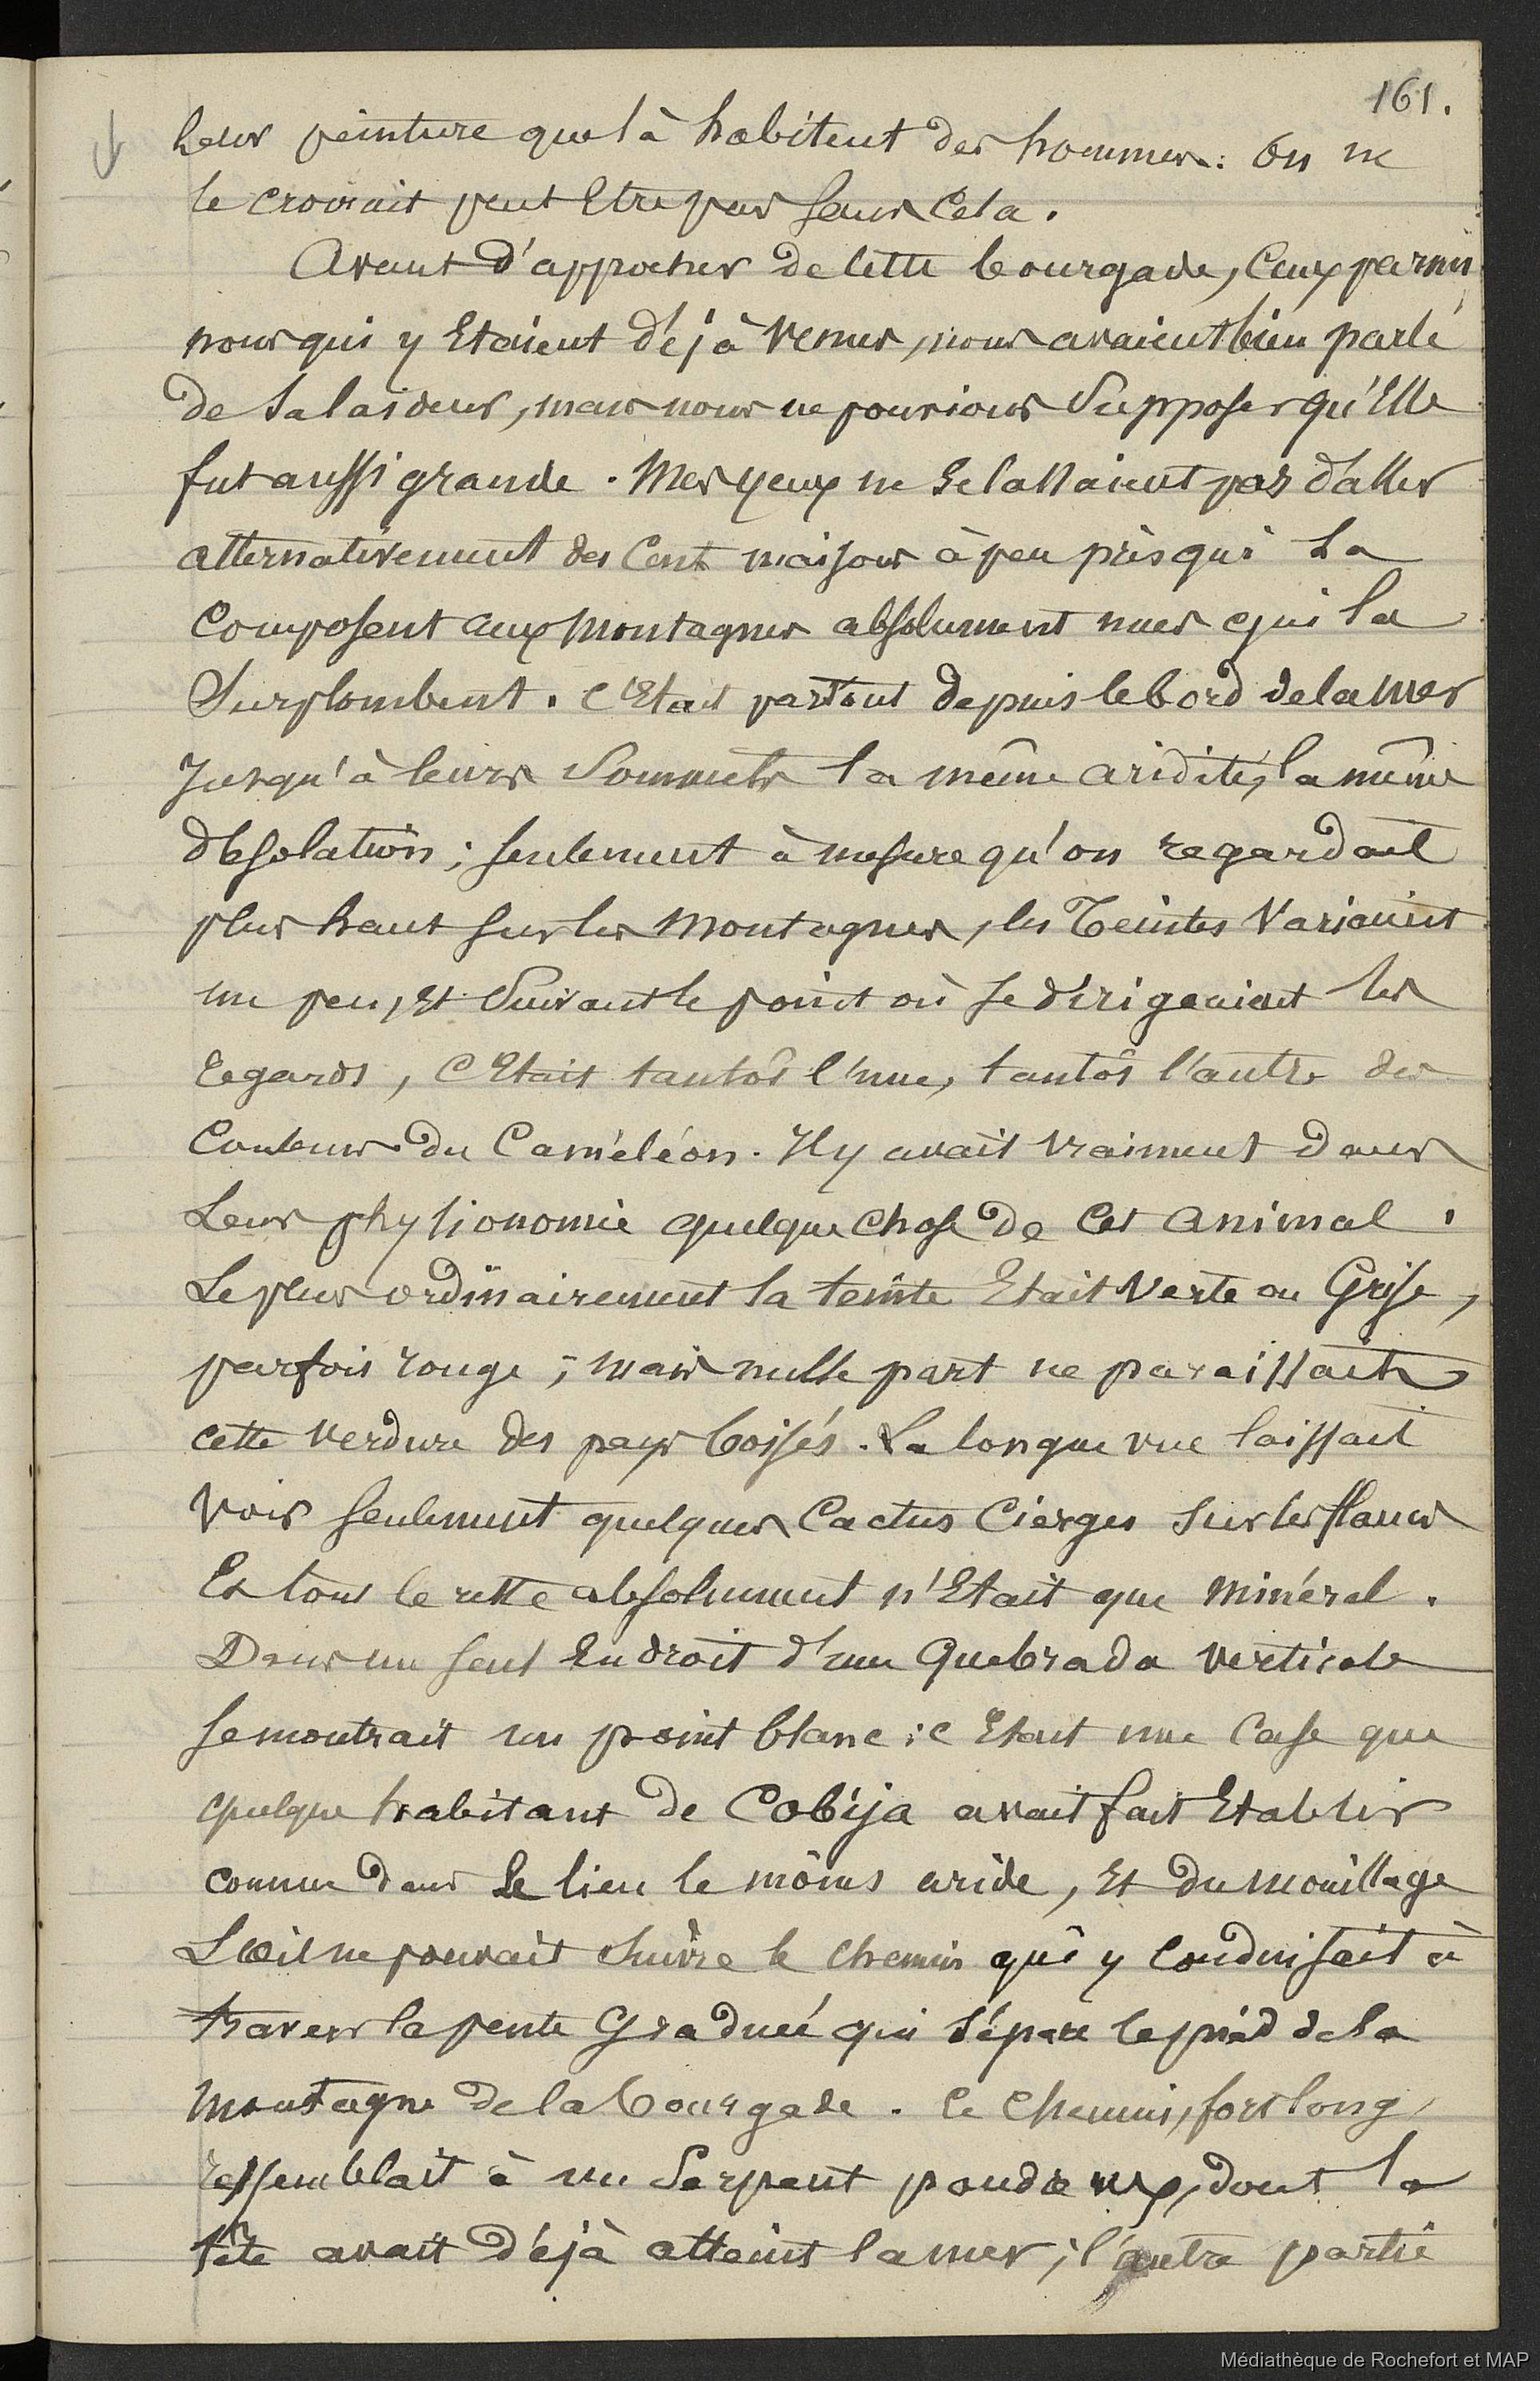 161.
leur peinture que là habitent des hommes: On ne
le croirait peut Etre pas sans Cela.
Avant d'approcher de Cette bourgade, Ceux parmi
nous qui y Etaient déjà venus, nous avaient bien parlé
de sa laideur, mais nous ne pouvions Supposer qu'Elle
fut aussi grande. Mes yeux ne se lassaient pas d'aller
alternativement des Cent maisons à peu près qui La
Composent aux Montagnes absolument nues qui la
Surplombent. C'Etait partout depuis le bord de la mer
Jusqu'à leurs Sommets la même aridité, la même
désolation; seulement à mesure qu'on regardait
plus haut sur les Montagnes, les Teintes Variaient
un peu, Et Suivant le point où se dirigeaient les
regards, C'Etait tantôt l'une, tantôt l'autre des
Couleurs du Caméléon. Il y avait vraiment dans
Leur physionomie quelque chose de Cet animal.
Le plus ordinairement la teinte Etait Verte ou Grise,
parfois rouge; mais nulle part ne paraissait
cette verdure des pays boisés. La longue vue laissait
voir seulement quelques Cactus Cierges sur les flancs
Et tout le reste absolument n'Etait que minéral.
Dans un seul Endroit d'une Quebrada verticale
se montrait un point blanc: c'Etait une Case que
quelque habitant de Cobija avait fait Etablir
comme dans Le lieu le moins aride, Et du mouillage
L'œil ne pouvait suivre le chemin qui y Conduisait à
travers la pente Graduée qui sépare le pied de la
Montagne de la bourgade. Ce Chemin, fort long,
ressemblait à un Serpent poudreux, dont la
tête avait déjà atteint la mer; l'autre partie
Médiathèque de Rochefort et MAP